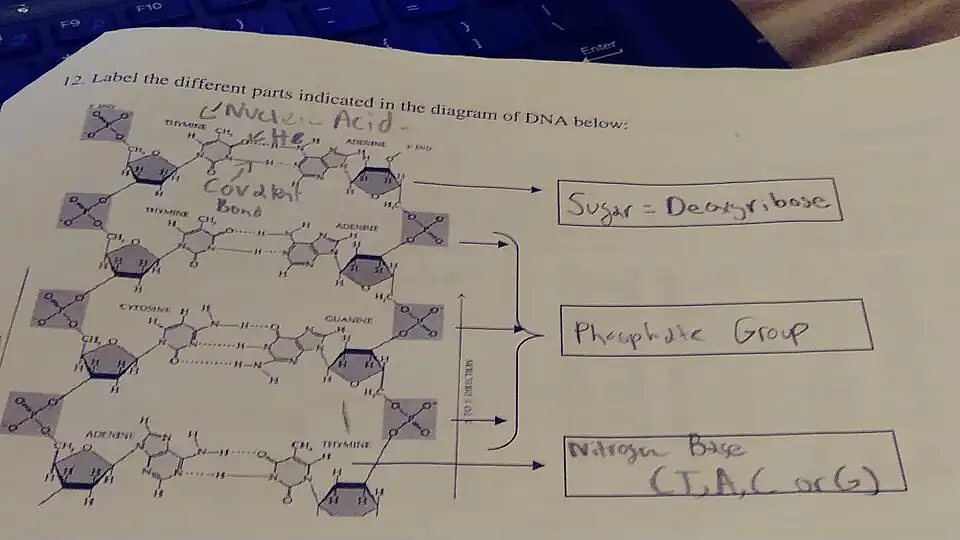 F9
F10
Enter
12. Label the different parts indicated in the diagram of DNA below:
Acid
THYMINE
CH₃
ADENINE
Covalent
Bond
Sugar = Deoxyribose
THYMINE
CH₃
ADENINE
CYTOSINE
GUANINE
Phosphate Group
ADENINE
CH₃
THYMINE
DIRECTION
Nitrogen Base
(T, A, C or G)